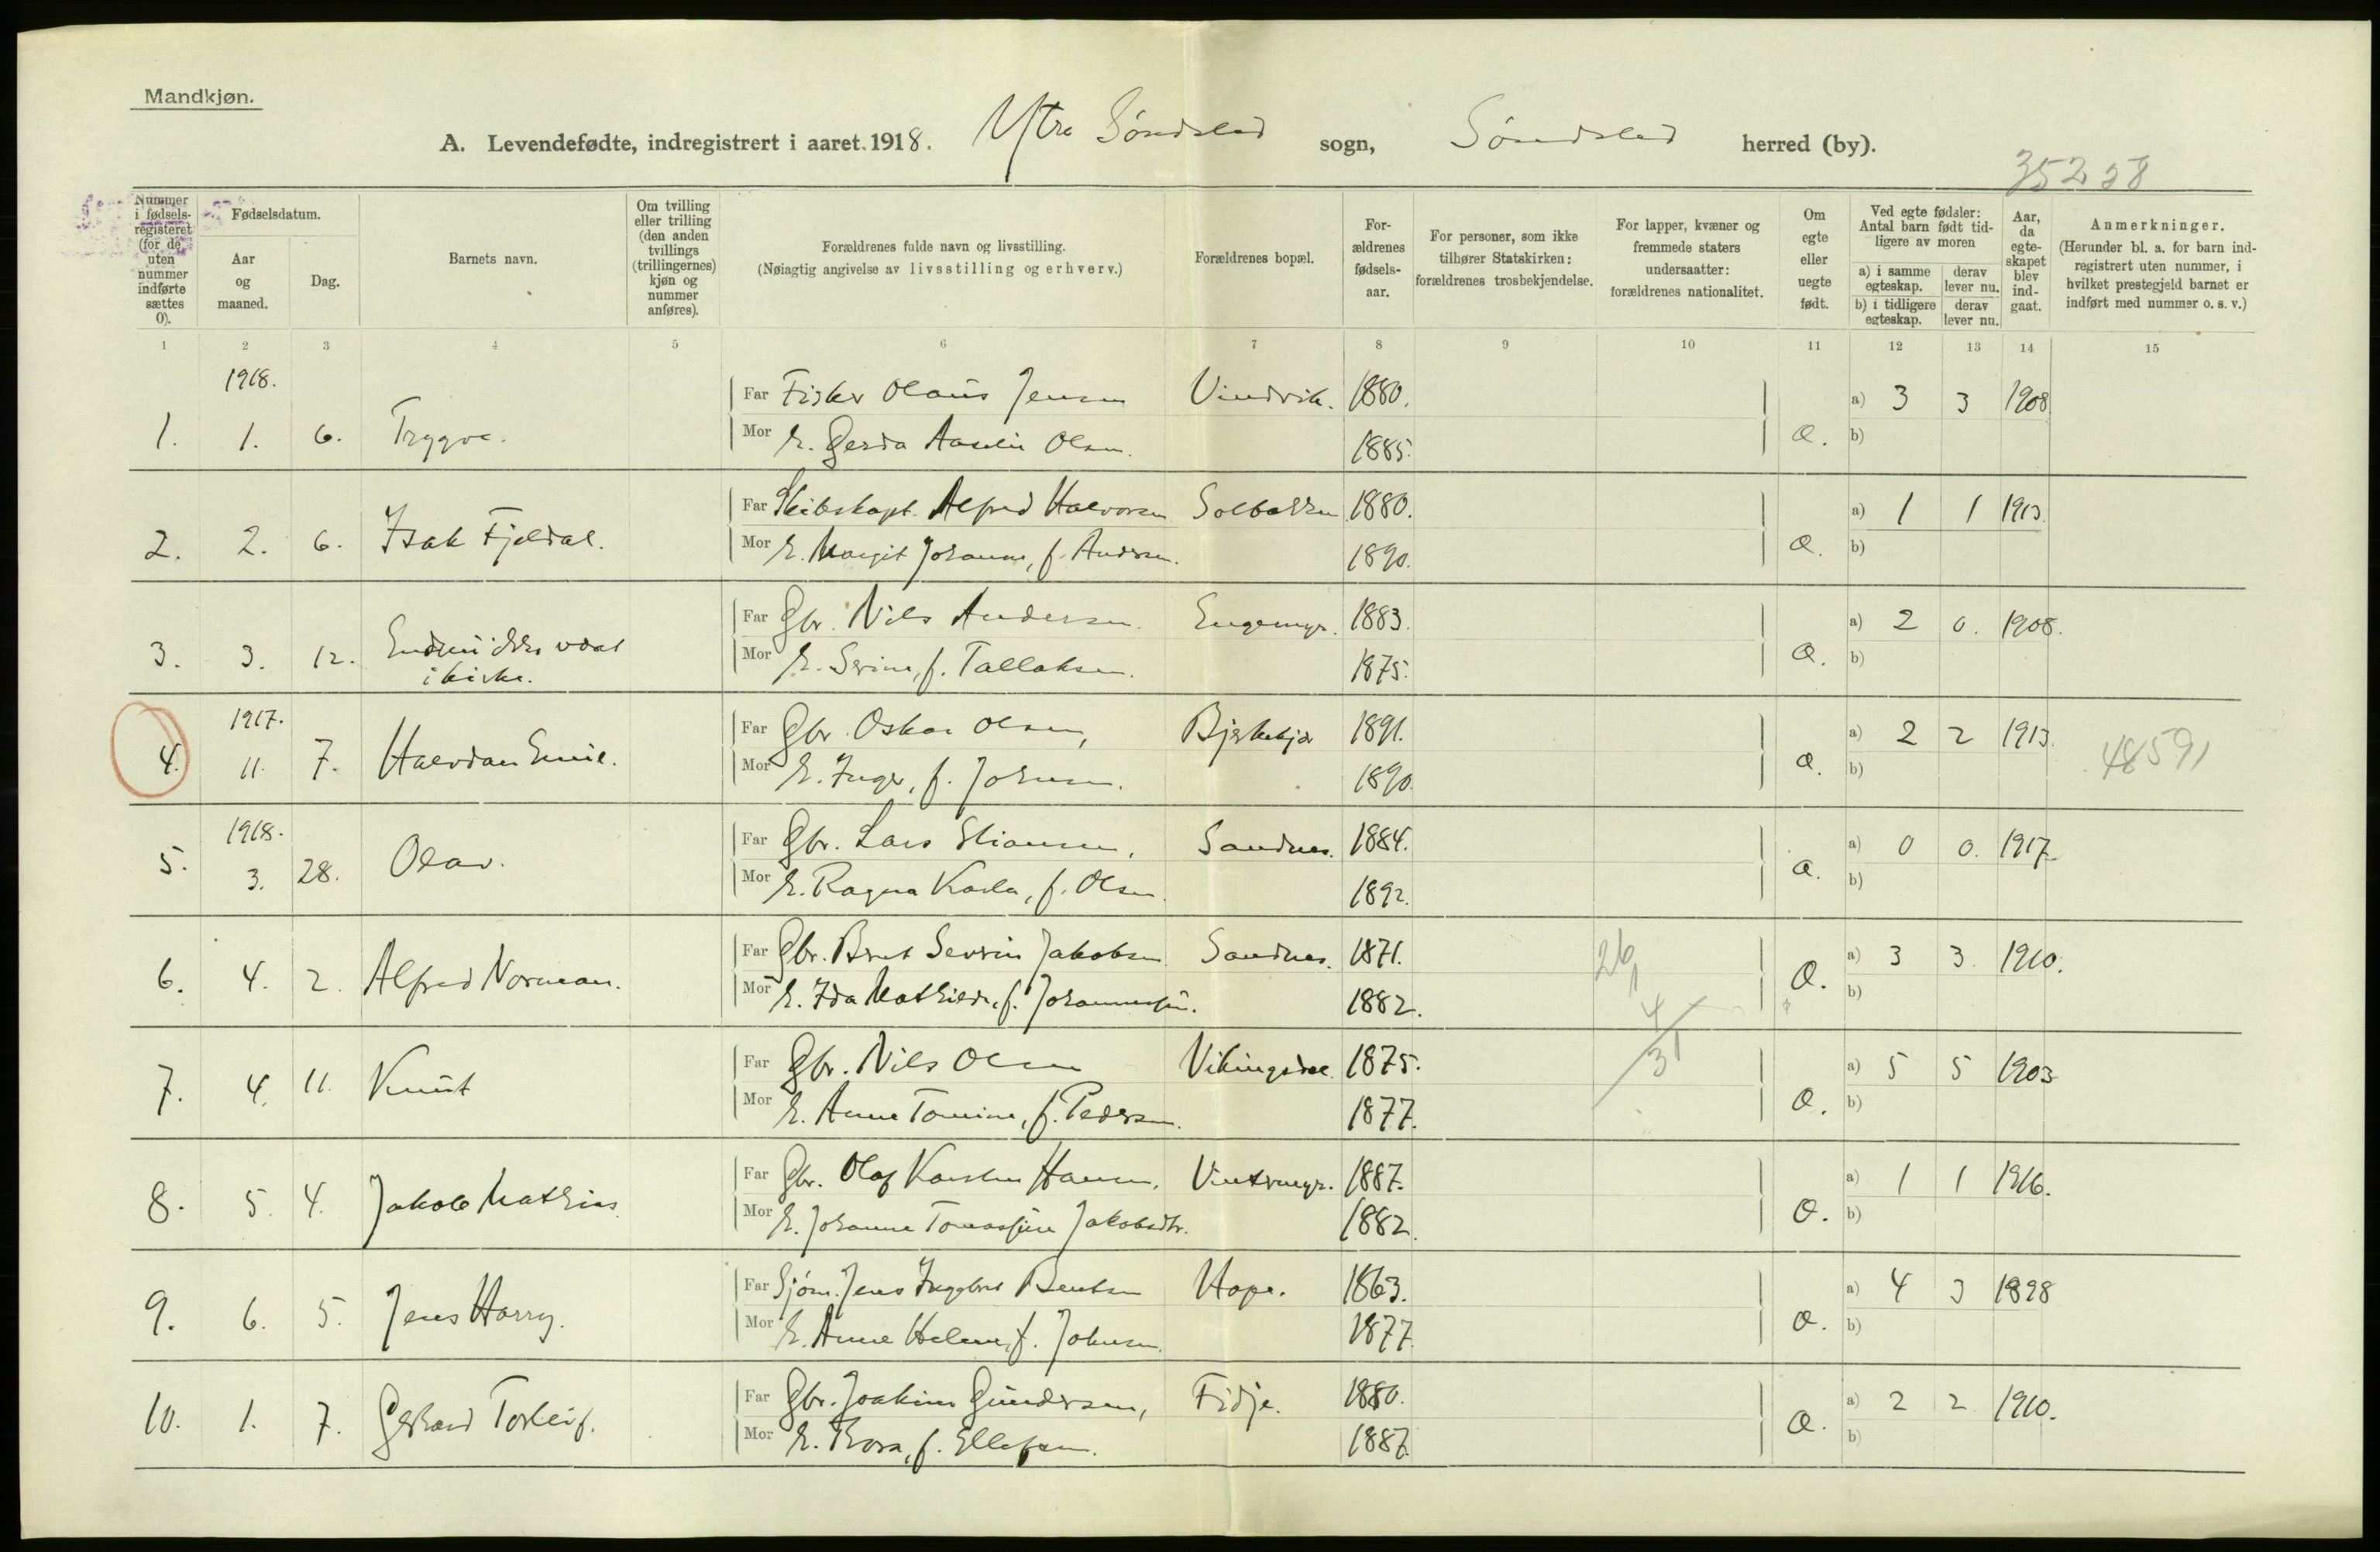 Mandkjøn.
A. Levendefødte, indregistrert i aaret 1918. Ytre Søndeled sogn, Søndeled herred (by).
35258
Nummer i fødsels-registeret (for de uten nummer indførte sættes 0).
Fødselsdatum.
Aar og maaned.
Dag.
Barnets navn.
Om tvilling eller trilling (den anden tvillings (trillingernes) kjøn og nummer anføres).
Forældrenes fulde navn og livsstilling.
(Nøiagtig angivelse av livsstilling og erhverv.)
Forældrenes bopæl.
For-ældrenes fødsels-aar.
For personer, som ikke tilhører Statskirken: forældrenes trosbekjendelse.
For lapper, kvæner og fremmede staters undersaatter: forældrenes nationalitet.
Om egte eller uegte født.
Ved egte fødsler: Antal barn født tid-ligere av moren
a) i samme egteskap.
derav lever nu.
b) i tidligere egteskap.
derav lever nu.
Aar, da egte-skapet blev ind-gaat.
Anmerkninger.
(Herunder bl. a. for barn ind-registrert uten nummer, i hvilket prestegjeld barnet er indført med nummer o. s. v.)
1 2 3 4 5 6 7 8 9 10 11 12 13 14 15
1918.
Far Fisker Olaus Jensen Vindvik. 1880. a) 3 3 1908
1. 1. 6. Trygve. Mor E. Gerda Aaselie Olsen. 1885. b)
Far Skibskapt. Alfred Halvorsen Solbakken 1880. a) 1 1 1913.
2. 2. 6. Isak Fjeldal. Mor E. Margit Johanne, f. Andersen. 1890. b)
Far Gbr. Nils Andersen. Engemyr. 1883. a) 2 0. 1908.
3. 3. 12. Endnu ikke vært i kirke. Mor E. Serine, f. Tallaksen. 1875. b)
1917.
Far Gbr. Oskar Olsen, 1891. a) 2 2 1913. 48591
4. 11. 7. Halvdan Emil. Mor E. Inger, f. Johnsen. 1890. b)
1918.
Far Gbr. Lars Stiansen, Sandnes. 1884. a) 0 0. 1917.
5. 3. 28. Olav. Mor E. Ragna Karla, f. Olsen 1892. b)
Far Gbr. Bernt Severin Jakobsen Sandnes. 1871. 26 a) 3 3. 1910.
6. 4. 2. Alfred Norman. Mor E. Ida Mathilde, f. Johannessen. 1882. b)
4/31
Far Gbr. Nils Olsen Vikingsdal 1875. a) 5 5 1903
7. 4. 11. Knut Mor E. Anne Tomine, f. Pedersen. 1877. b)
Far Gbr. Olaf Karsten Hansen, Vintermyr. 1887. a) 1 1 1916.
8. 5. 4. Jakob Mathias. Mor E. Johanne Tomassine Jakobsdtr. 1882. b)
Far Sjøm. Jens Ingebret Bentsen Hope. 1863. a) 4 3 1898
9. 6. 5. Jens Harry. Mor E. Anne Helene, f. Johnsen. 1877. b)
Far Gbr. Joakim Gundersen, Fidje. 1880. a) 2 2 1910.
10. 1. 7. Gerhard Torleif. Mor E. Thora, f. Ellefsen. 1887. b)